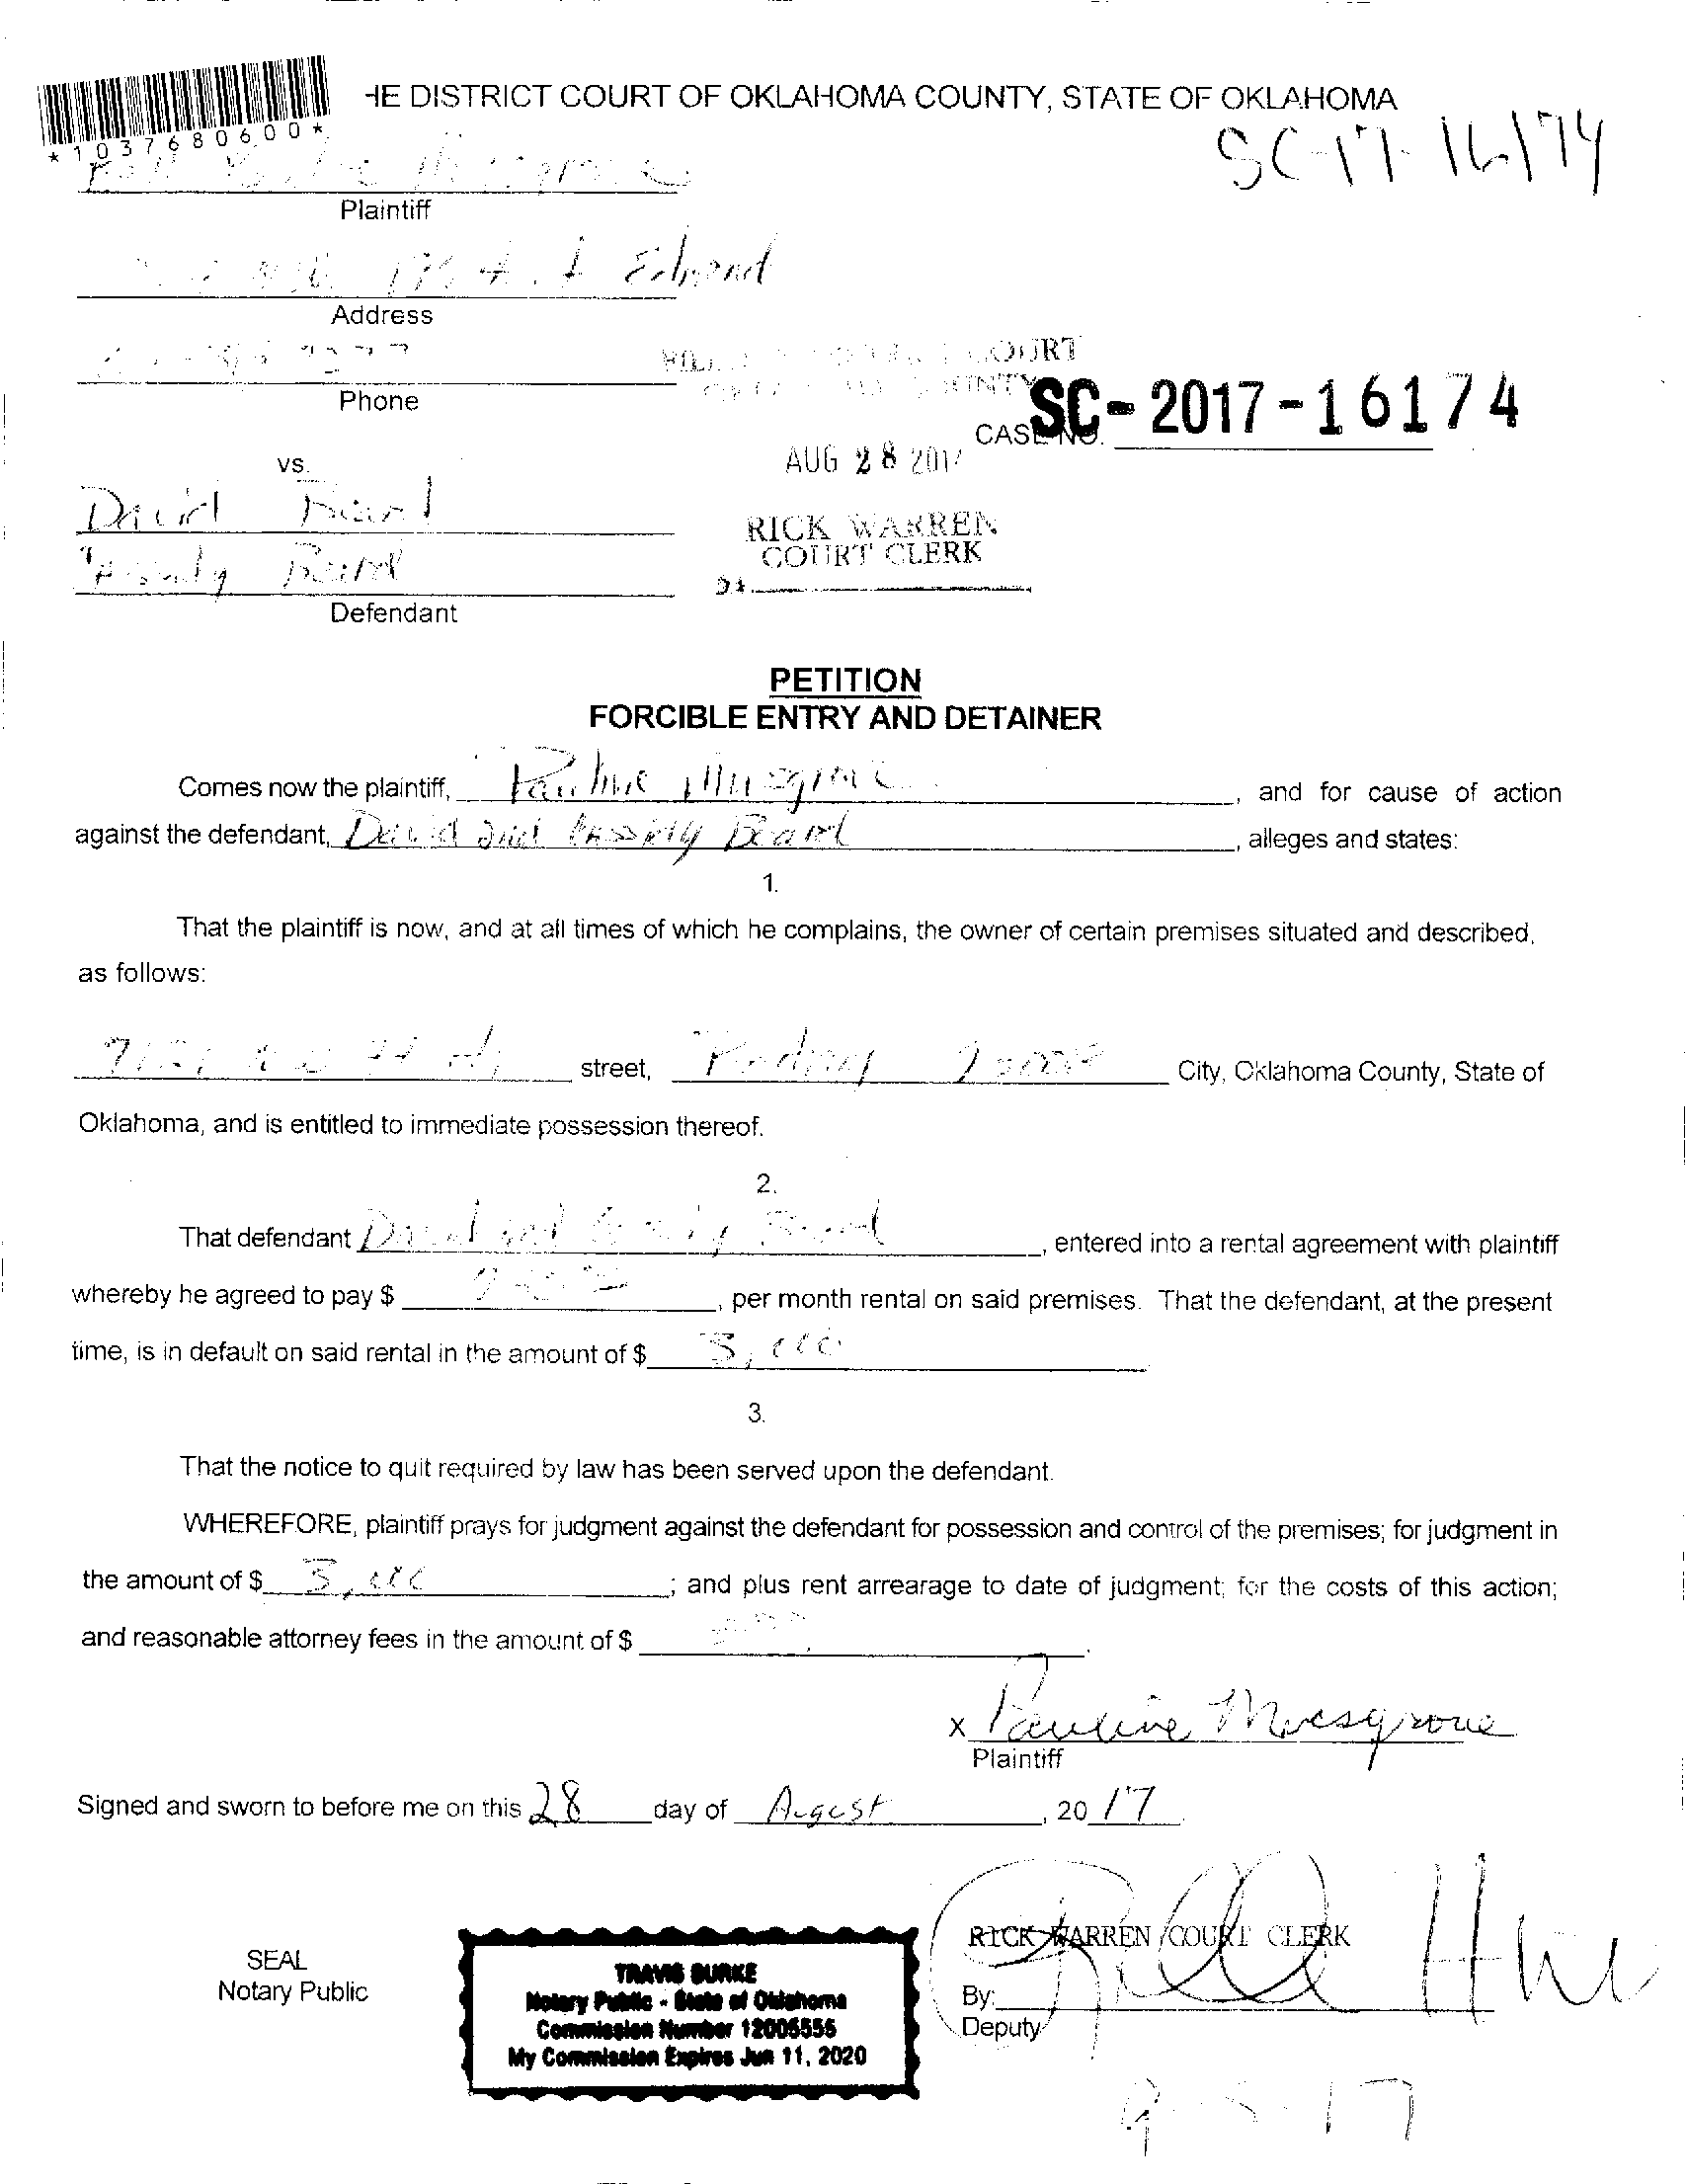 HE DISTRICT COURT OF OKLAHOMA COUNTY, STATE OF OKLAHOMA
*1037680600*
SC-17-16174
Plaintiff
Edmond
Address
Phone
COURT
SC-2017-16174
CASE NO.
AUG 28 2017
vs.
David Beard
RICK WARREN
COURT CLERK
Beard
Defendant
PETITION
FORCIBLE ENTRY AND DETAINER
Comes now the plaintiff, Pauline Musgrove, and for cause of action
against the defendant, David and Cassidy Beard, alleges and states:
1.
That the plaintiff is now, and at all times of which he complains, the owner of certain premises situated and described,
as follows:
street, City, Oklahoma County, State of
Oklahoma, and is entitled to immediate possession thereof.
2.
That defendant David and Beard, entered into a rental agreement with plaintiff
whereby he agreed to pay $, per month rental on said premises. That the defendant, at the present
time, is in default on said rental in the amount of $ 3,000
3.
That the notice to quit required by law has been served upon the defendant.
WHEREFORE, plaintiff prays for judgment against the defendant for possession and control of the premises; for judgment in
the amount of $ 3,000; and plus rent arrearage to date of judgment; for the costs of this action;
and reasonable attorney fees in the amount of $.
x Pauline Musgrove
Plaintiff
Signed and sworn to before me on this 28 day of Agust, 20 17
RICK WARREN COURT CLERK
SEAL
Notary Public
TRAVIS BURKE
Notary Public - State of Oklahoma
Commission Number 12005555
My Commission Expires Jun 11, 2020
By:
Deputy
9-5-17